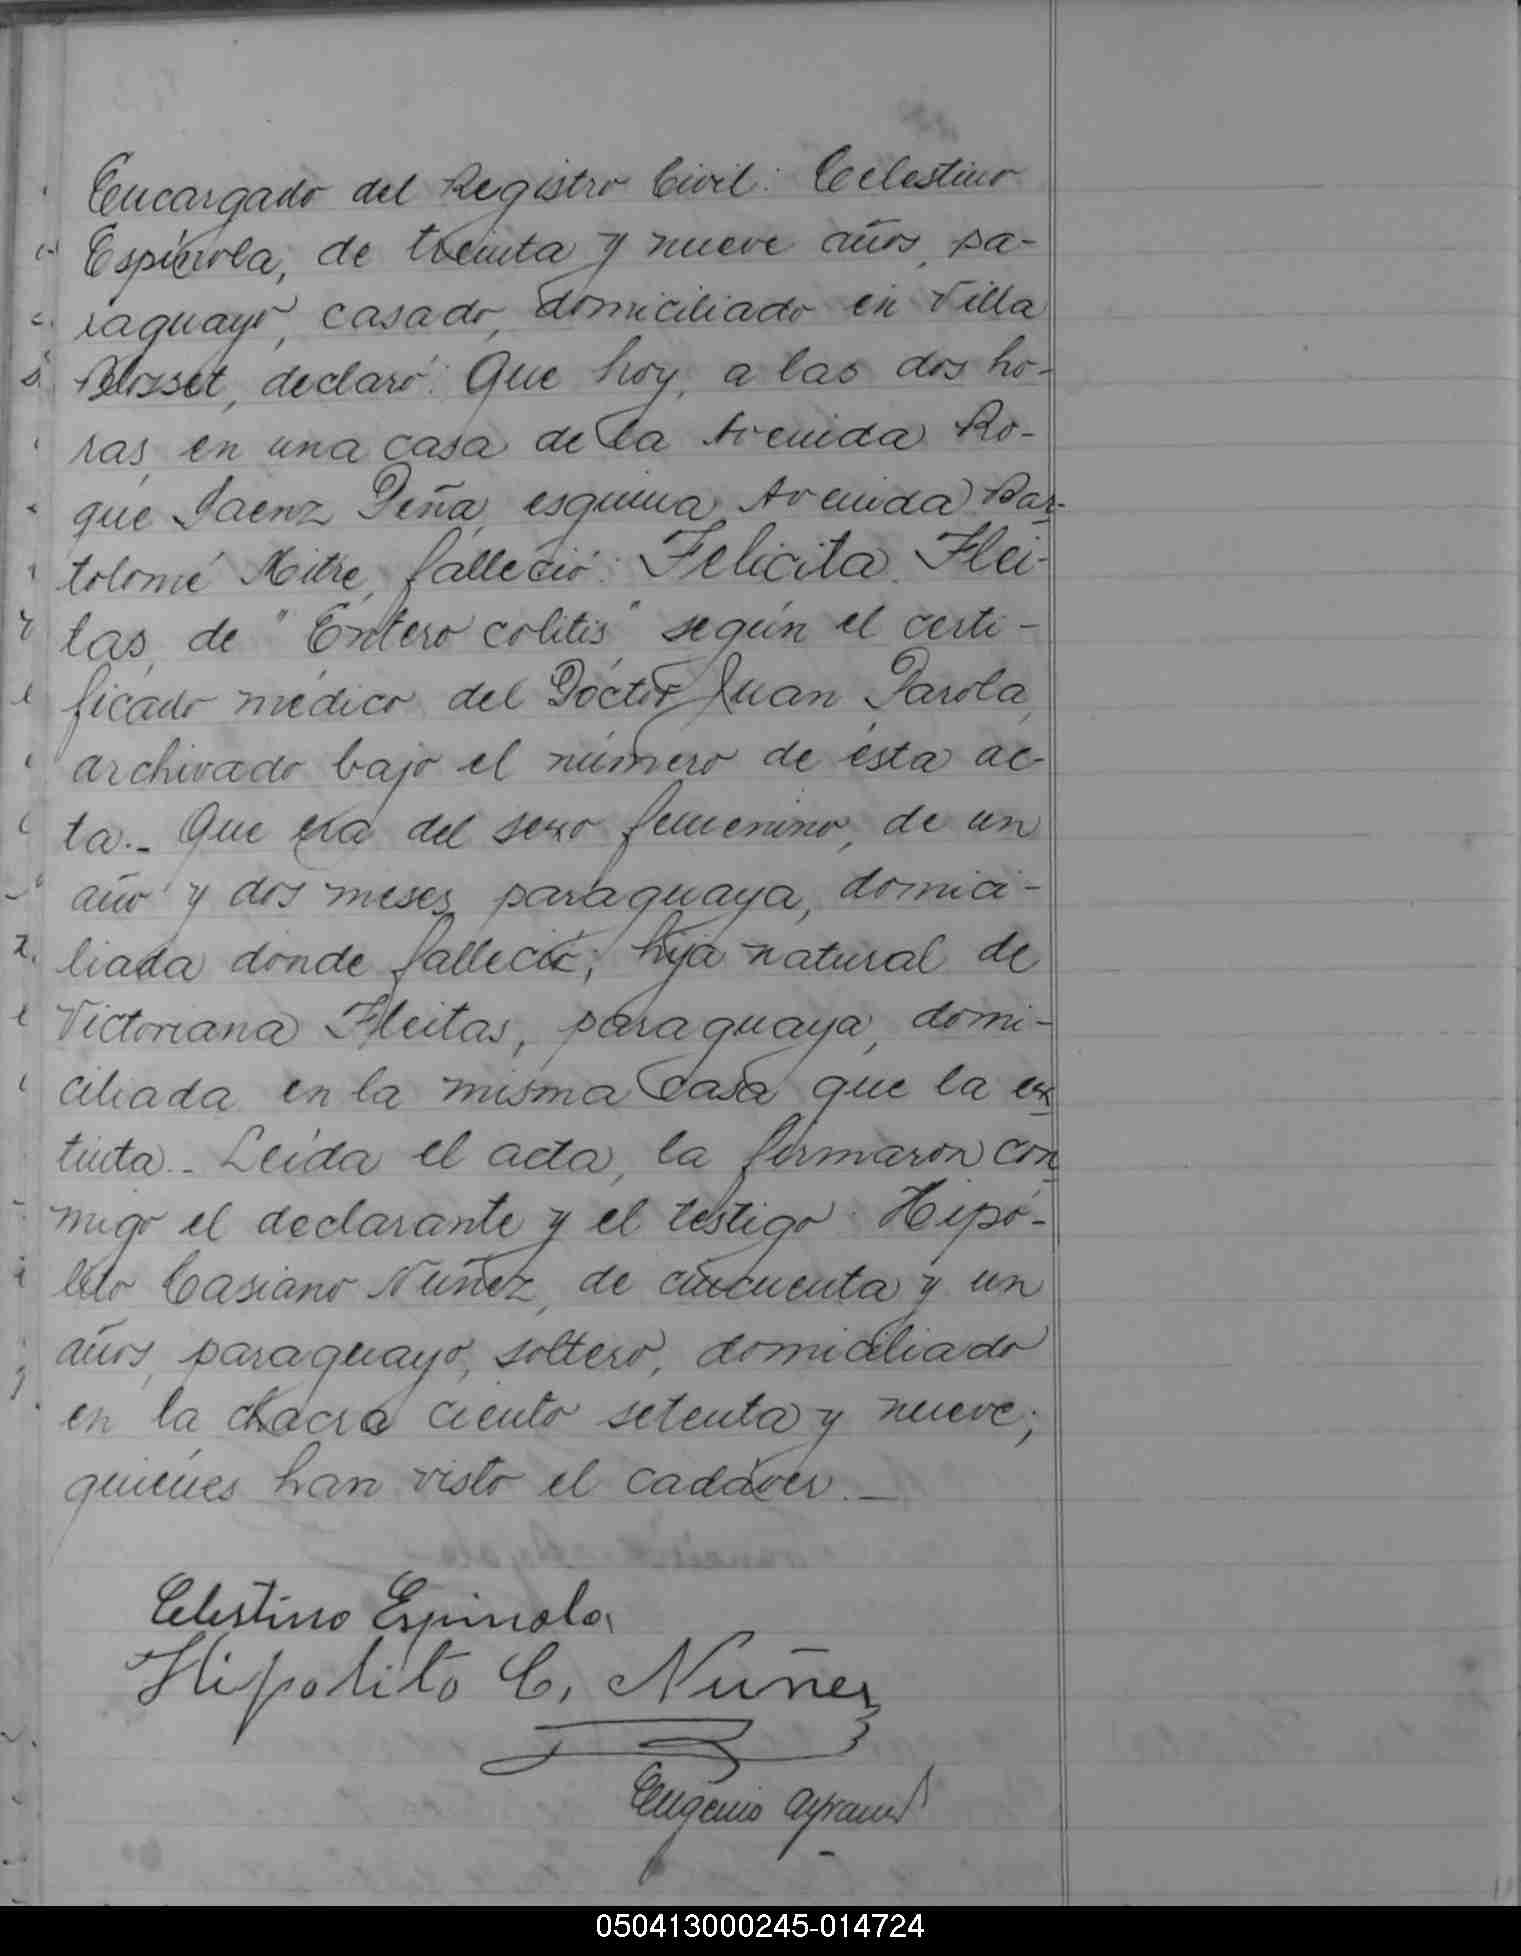 Encargado del Registro Civil: Celestino
Espínola, de treinta y nueve años, pa-
raguayo, casado, domiciliado en Villa
Blosset, declaró: Que hoy, a las dos ho-
ras, en una casa de la Avenida Ro-
que Saenz Peña, esquina Avenida Bar-
tolomé Mitre, falleció: Felicita Flei-
tas, de "Entero colitis" según el certi-
ficado médico del Doctor Juan Parola,
archivado bajo el número de ésta ac-
ta._ Que era del sexo femenino, de un
año y dos meses, paraguaya, domici-
liada donde falleció; hija natural de
Victoriana Fleitas, paraguaya, domi-
ciliada en la misma casa que la ex-
tinta._ Leída el acta, la firmaron con
migo el declarante y el testigo: Hipó-
lito Casiano Nuñez, de cincuenta y un
años, paraguayo, soltero, domiciliado
en la chacra ciento setenta y nueve;
quiénes han visto el cadáver._
Celestino Espinola
Hipolito C. Nuñez
Eugenio
050413000245-014724